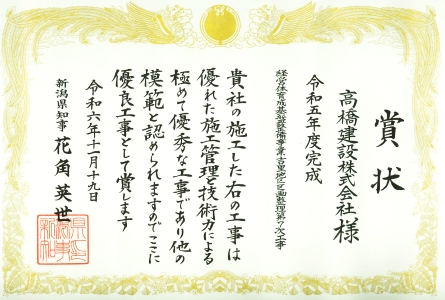 賞状
高橋建設株式会社様
令和五年度完成
経営体育成基盤整備事業吉里地区区画整理第7次工事
貴社の施工した右の工事は
優れた施工管理と技術力による
極めて優秀な工事であり他の
模範と認められますのでここに
優良工事として賞します
令和六年十一月十九日
新潟県知事 花角英世